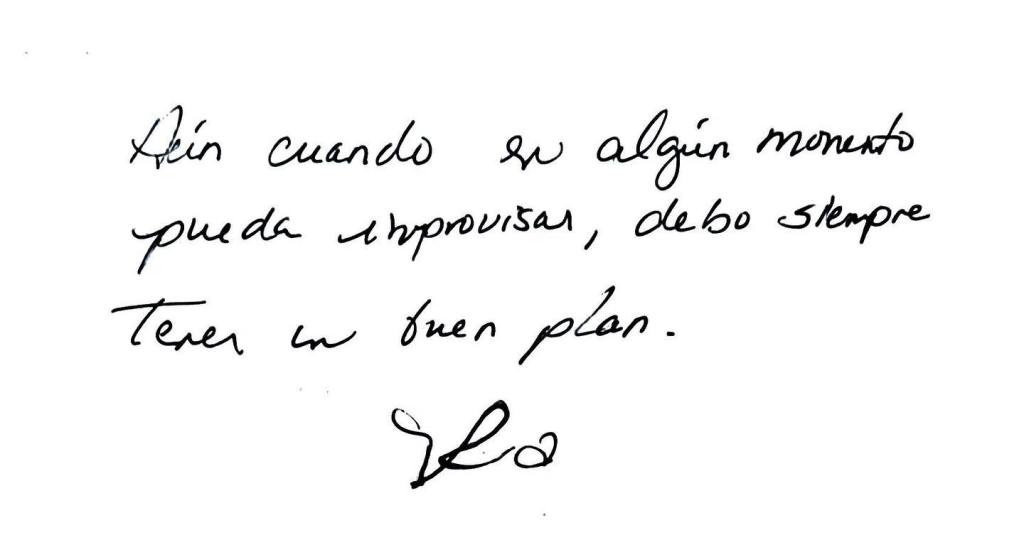 Aún cuando en algún momento
pueda improvisar, debo siempre
Tener un buen plan.